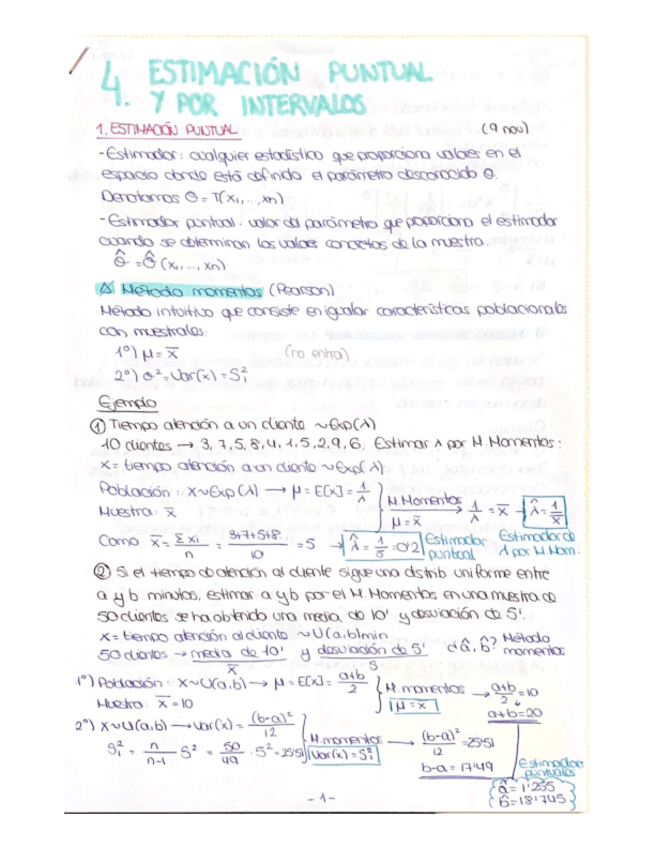 4. ESTIMACIÓN PUNTUAL
Y POR INTERVALOS
1. ESTIMACIÓN PUNTUAL (9 nov)
-Estimador: cualquier estadístico que proporciona valores en el
espacio donde está definido el parámetro desconocido θ.
Denotamos θ = T(x1, ..., xn)
-Estimador puntual: valor del parámetro que proporciona el estimador
cuando se determinan los valores concretos de la muestra.
θ̂ = θ̂ (x1, ..., xn)
Método momentos (Pearson)
Método intuitivo que consiste en igualar características poblacionales
con muestrales:
1º) μ = x̄ (no entra)
2º) σ² = Var(x) = S₁²
Ejemplo
① Tiempo atención a un cliente ~ Exp(λ)
10 clientes → 3, 7, 5, 8, 4, 1, 5, 2, 9, 6. Estimar λ por M. Momentos:
X = tiempo atención a un cliente ~ Exp(λ)
Población: X ~ Exp(λ) → μ = E[X] = 1/λ
Muestra: x̄
M. Momentos
μ = x̄
→ 1/λ = x̄ → λ̂ = 1/x̄
Como x̄ = Σxi/n = 3+7+5+8.../10 = 5 → λ̂ = 1/5 = 0'2
Estimador puntual
Estimador de λ por M. Mom.
② Si el tiempo de atención al cliente sigue una distrib. uniforme entre
a y b minutos, estimar a y b por el M. Momentos en una muestra de
50 clientes se ha obtenido una media de 10' y desviación de 5'.
X = tiempo atención al cliente ~ U(a,b) min
50 clientes → media de 10' y desviación de 5' ¿â, b̂? Método momentos
x̄ S
1º) Población: X ~ U(a,b) → μ = E[X] = a+b/2
Muestra: x̄ = 10
M. momentos
μ = x̄
→ a+b/2 = 10
a+b = 20
2º) X ~ U(a,b) → Var(x) = (b-a)²/12
S₁² = n/n-1 S² = 50/49 · 5² = 25'51
M. momentos
Var(x) = S₁²
→ (b-a)²/12 = 25'51
b-a = 17'49
Estimadores puntuales
â = 1'255
b̂ = 18'745
- 1 -